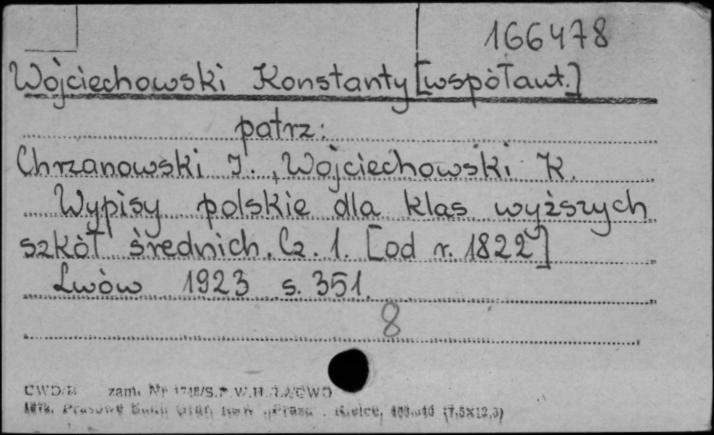 166478
Wojciechowski Konstanty [współaut.]
patrz:
Chrzanowski I., Wojciechowski K.
Wypisy polskie dla klas wyższych
szkół średnich. Cz. 1. [od r. 1822]
Lwów 1923 s. 351.
8
zam. Nr